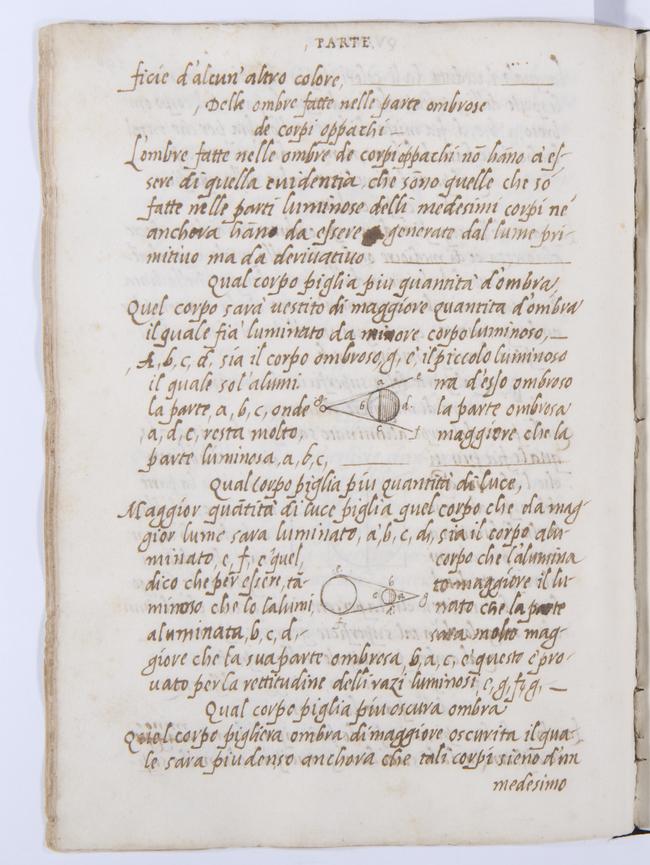 , PARTE
ficie d'alcun'altro colore,
, Delle ombre fatte nelle parte ombrose
de corpi oppachi —
L'ombre fatte nelle ombre de corpi oppachi nō hāno à es-
sere di quella evidentia, che sōno quelle che sō
fatte nelle parti luminose delli medesimi corpi ne
anchora hāno da essere generate dal lume pri-
mitivo ma da derivativo
Qual corpo piglia piu quantità d'ombra,
Quel corpo sarà vestito di maggiore quantita d'ombra
il quale fia luminato da minore corpo luminoso, —
, A, b, c, d, sia il corpo ombroso, g, è il piccolo luminoso
il quale sol' alumi a na d'esso ombroso
la parte, a, b, c, onde g b d la parte ombrosa
a, d, c, resta molto, c f maggiore che la
parte luminosa, a, b, c,
Qual corpo piglia piu quantità di luce,
Maggior quātità di luce piglia quel corpo che da mag-
gior lume sara luminato, a, b, c, d, sia il corpo alu-
minato, e, f, è quel, corpo che l'alumina
dico che per essere, tā- e b to maggiore il lu-
minoso che lo lalumi, a g nato che la parte
aluminata, b, c, d, - f sara molto mag-
giore che la sua parte ombrosa, b, a, c, e questo è pro-
vato per la rettitudine delli razi luminosi, e, g, f, g, —
Qual corpo piglia piu oscura ombra
Quel corpo pigliera ombra di maggiore oscurita il qua-
le sara piu denso anchora che tali corpi sieno d'un
medesimo